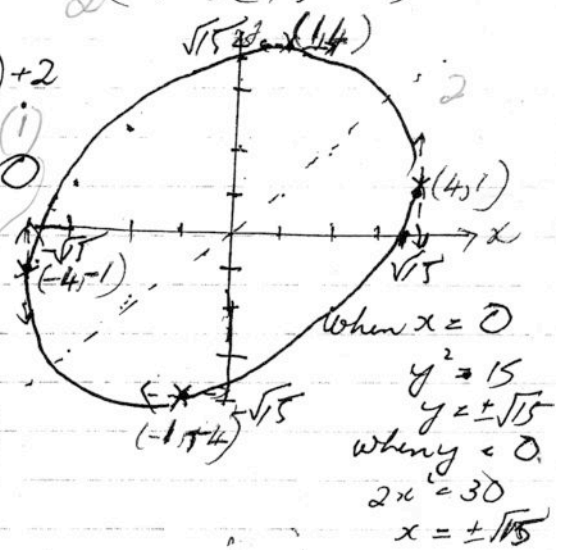 √15 y (1,4)
) + 2
2
1
0
(4, 1)
x
-√15
(-4, -1)
√15
when x = 0
y² = 15
-√15
y = ±√15
(-1, -4)
when y = 0.
2x² = 30
x = ±√15